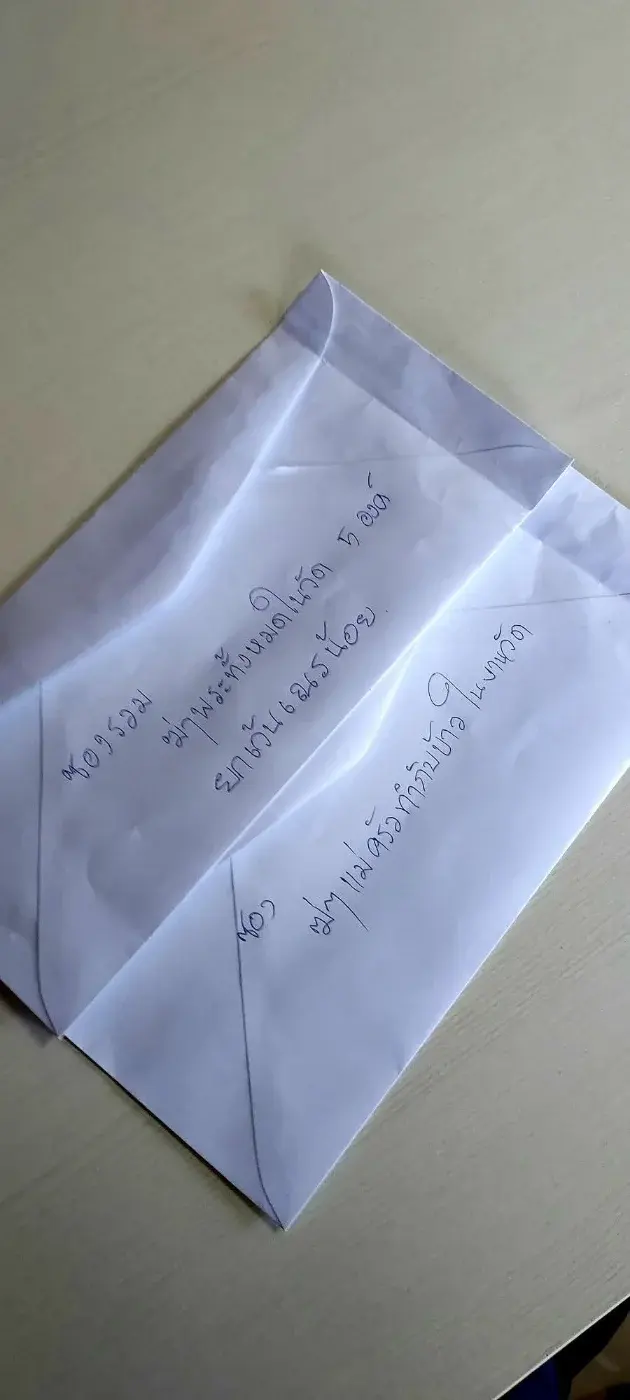 ซองรวม
ฆ่าๆพระทั้งหมดในวัด 5 องค์
ยกเว้นเณรน้อย
ซอง
ฆ่าๆแม่ครัวทำกับข้าวในงานวัด